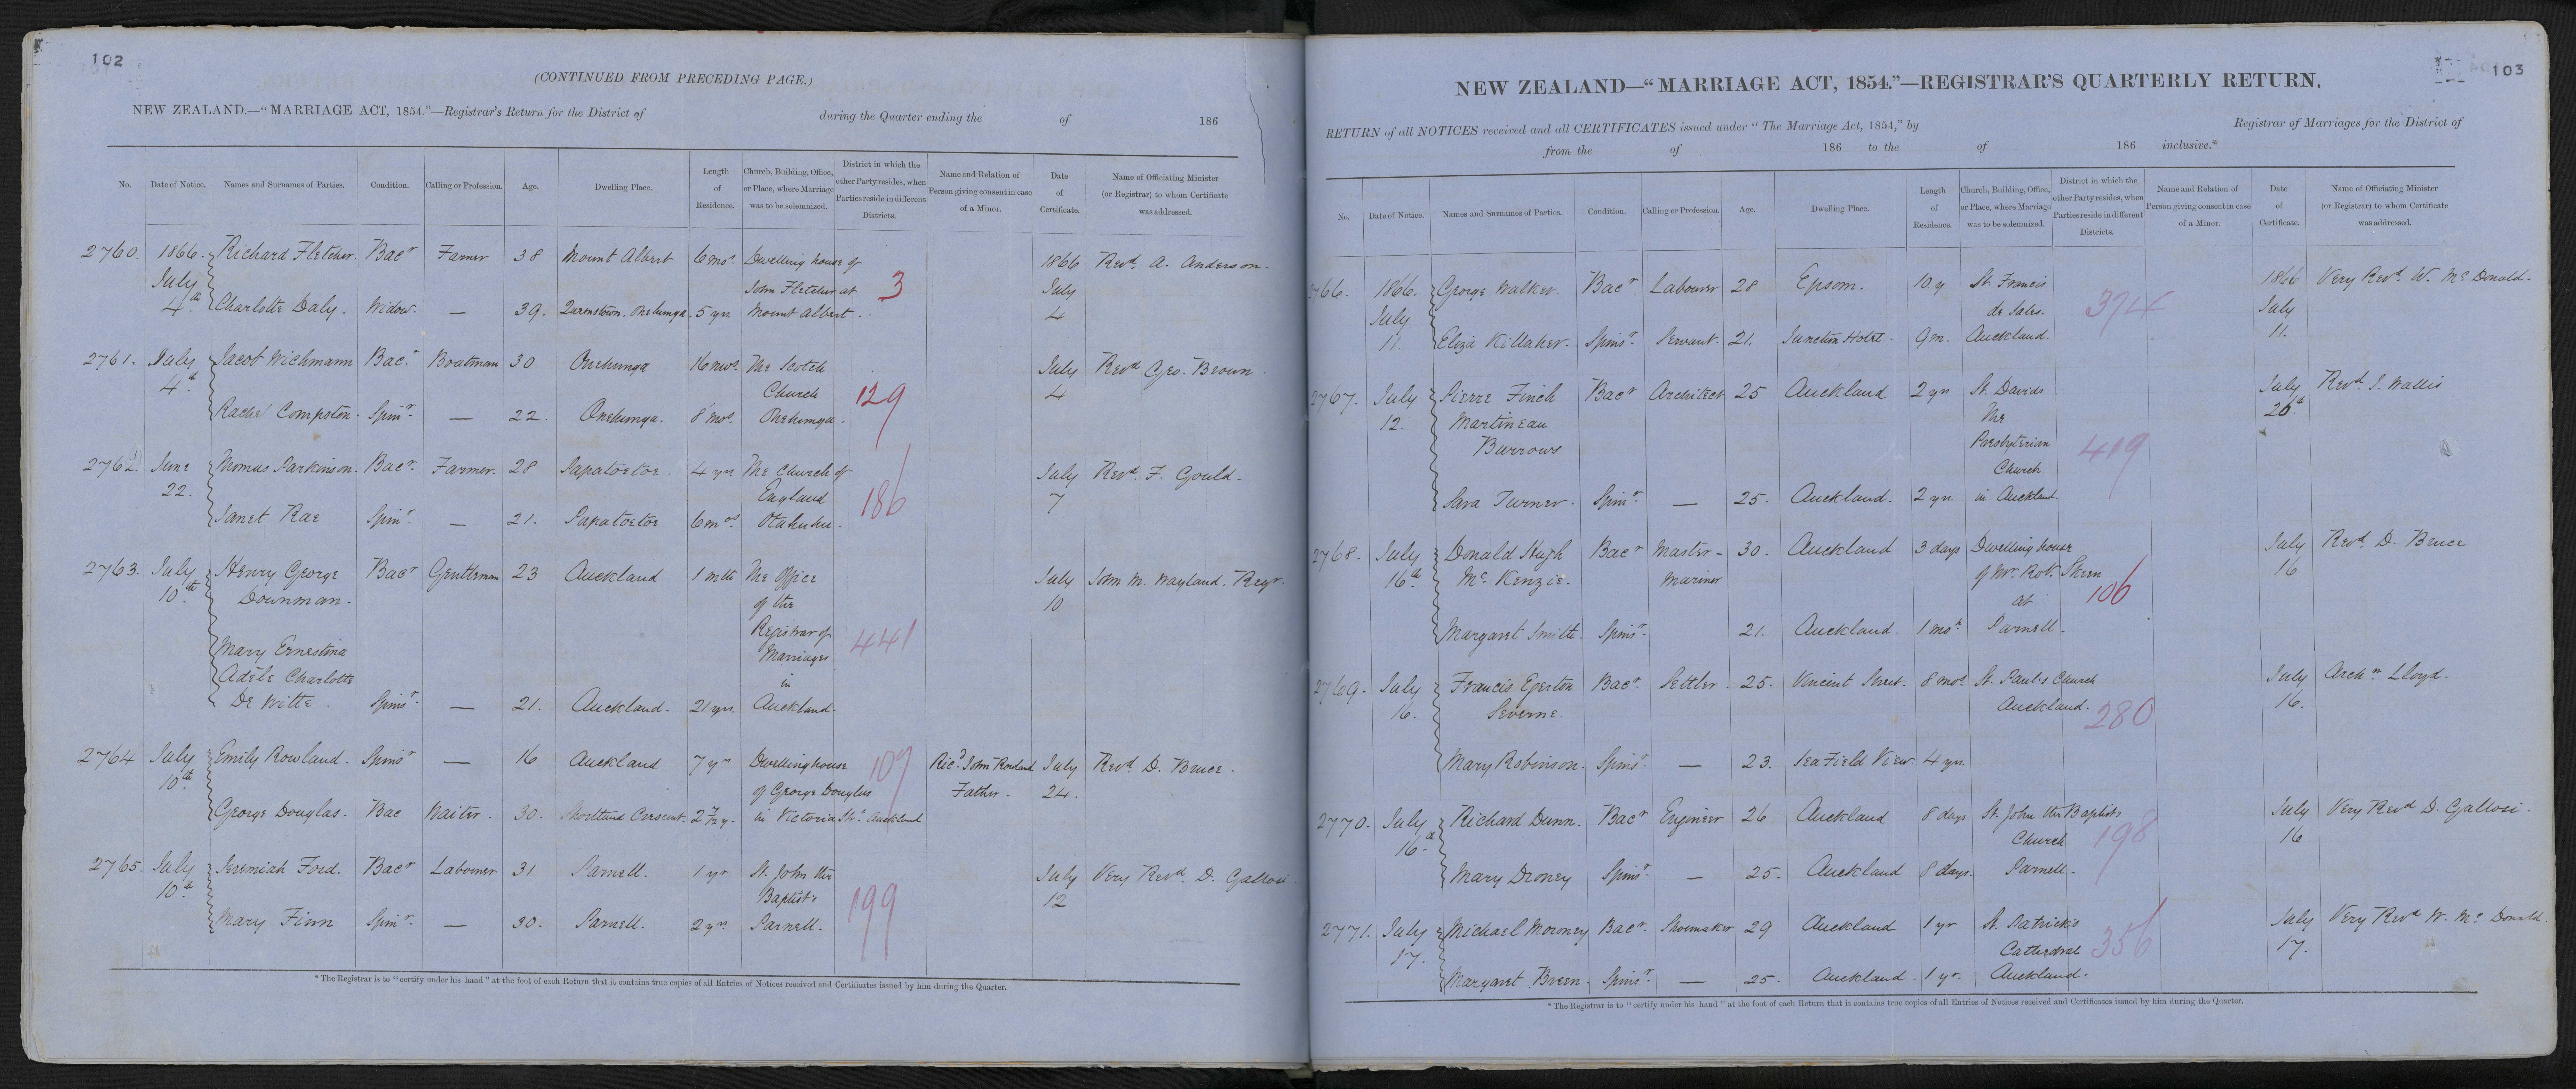 102
(CONTINUED FROM PRECEDING PAGE.)
NEW ZEALAND.—"MARRIAGE ACT, 1854."—Registrar's Return for the District of during the Quarter ending the of 186
No. Date of Notice. Names and Surnames of Parties. Condition. Calling or Profession. Age. Dwelling Place. Length of Residence. Church, Building, Office, or Place, where Marriage was to be solemnized. District in which the other Party resides, when Parties reside in different Districts. Name and Relation of Person giving consent in case of a Minor. Date of Certificate. Name of Officiating Minister (or Registrar) to whom Certificate was addressed.
2760. 1866. Richard Fletcher. Bacr Farmer 38 Mount Albert 6 mos. Dwelling house of 1866 Revd. A. Anderson.
July John Fletcher at 3 July
4th. Charlotte Daly. Widow. — 39. Onehunga 5 yrs Mount Albert. 4
2761. July Jacob Wichmann Bacr. Boatman 30 Onehunga 16 mos. The Scotch July Revd Geo. Brown.
4th. Church 129 4
Rachel Compston. Spinr. — 22. Onehunga. 8 mos. Onehunga.
2762. June Thomas Parkinson. Bacr. Farmer. 28 Papatoetoe. 4 yrs The Church of July Revd. F. Gould.
22. England 186 7
Janet Rae Spinr. — 21. Papatoetoe 6 mos. Otahuhu.
2763. July Henry George Bacr Gentleman 23 Auckland 1 mth The Office July John M. Wayland. Regr.
10th. Downman. of the 10
Registrar of 441
Mary Ernestina Marriages
Adèle Charlotte in
De Witte. Spinsr. — 21. Auckland. 21 yrs. Auckland.
2764 July Emily Rowland. Spinsr — 16 Auckland 7 yrs Dwelling house 109 Ricd. John Rowland July Revd. D. Bruce.
10th. of George Douglas Father. 24.
George Douglas. Bac Waiter. 30. Shortland Crescent. 2 1/2 y. in Victoria St. Auckland
2765. July Jeremiah Ford. Bacr Labourer 31 Parnell. 1 yr St. John the July Very Revd. D. Gallosi.
10th. Baptists 199 12
Mary Finn Spinr. — 30. Parnell. 2 yrs. Parnell.
* The Registrar is to "certify under his hand" at the foot of each Return that it contains true copies of all Entries of Notices received and Certificates issued by him during the Quarter.
103
NEW ZEALAND—"MARRIAGE ACT, 1854."—REGISTRAR'S QUARTERLY RETURN.
RETURN of all NOTICES received and all CERTIFICATES issued under "The Marriage Act, 1854," by Registrar of Marriages for the District of
from the of 186 to the of 186 inclusive.*
No. Date of Notice. Names and Surnames of Parties. Condition. Calling or Profession. Age. Dwelling Place. Length of Residence. Church, Building, Office, or Place, where Marriage was to be solemnized. District in which the other Party resides, when Parties reside in different Districts. Name and Relation of Person giving consent in case of a Minor. Date of Certificate. Name of Officiating Minister (or Registrar) to whom Certificate was addressed.
2766. 1866. George Walker. Bacr Labourer 28 Epsom. 10 y St. Francis 1866 Very Revd. W. McDonald.
July de Sales. 374 July
11. Eliza Killaher. Spinsr. Servant. 21. Junction Hotel. 9 m. Auckland. 11.
2767. July Pierre Finch Bacr Architect 25 Auckland 2 yrs St. Davids July Revd. J. Wallis
12. Martineau The 26th.
Burrows Presbyterian 419
Church
Sara Turner. Spinr. — 25. Auckland. 2 yrs. in Auckland.
2768. July Donald Hugh Bacr Master- 30. Auckland 3 days Dwelling house July Revd. D. Bruce
16th McKenzie. Mariner of Mr. Robt. Skeen 16
at 106
Margaret Smith. Spinsr. 21. Auckland. 1 mos. Parnell.
2769. July Francis Egerton Bacr. Settler. 25. Vincent Street. 8 mos. St. Pauls Church July Archn. Lloyd.
16. Severne. Auckland. 280 16.
Mary Robinson. Spinsr. — 23. Sea Field View 4 yrs.
2770. July Richard Dunn. Bacr Engineer 26 Auckland 8 days St. John the Baptists July Very Revd D. Gallosi.
16. Church 198 16
Mary Droney Spinsr. — 25. Auckland 8 days. Parnell.
2771. July Michael Mooney Bacr. Shoemaker 29 Auckland 1 yr St. Patrick's July Very Revd W. McDonald.
17. Cathedral 356 17.
Margaret Breen. Spinsr. — 25. Auckland. 1 yr. Auckland.
* The Registrar is to "certify under his hand" at the foot of each Return that it contains true copies of all Entries of Notices received and Certificates issued by him during the Quarter.